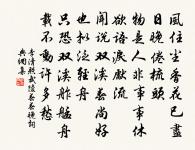 風住尘香花已盡
日晚倦梳頭
物是人非事事休
欲語淚先流
聞說雙溪春尚好
也拟泛輕舟
只恐雙溪舴艋舟
載不動許多愁
李清照武陵春春晚詞